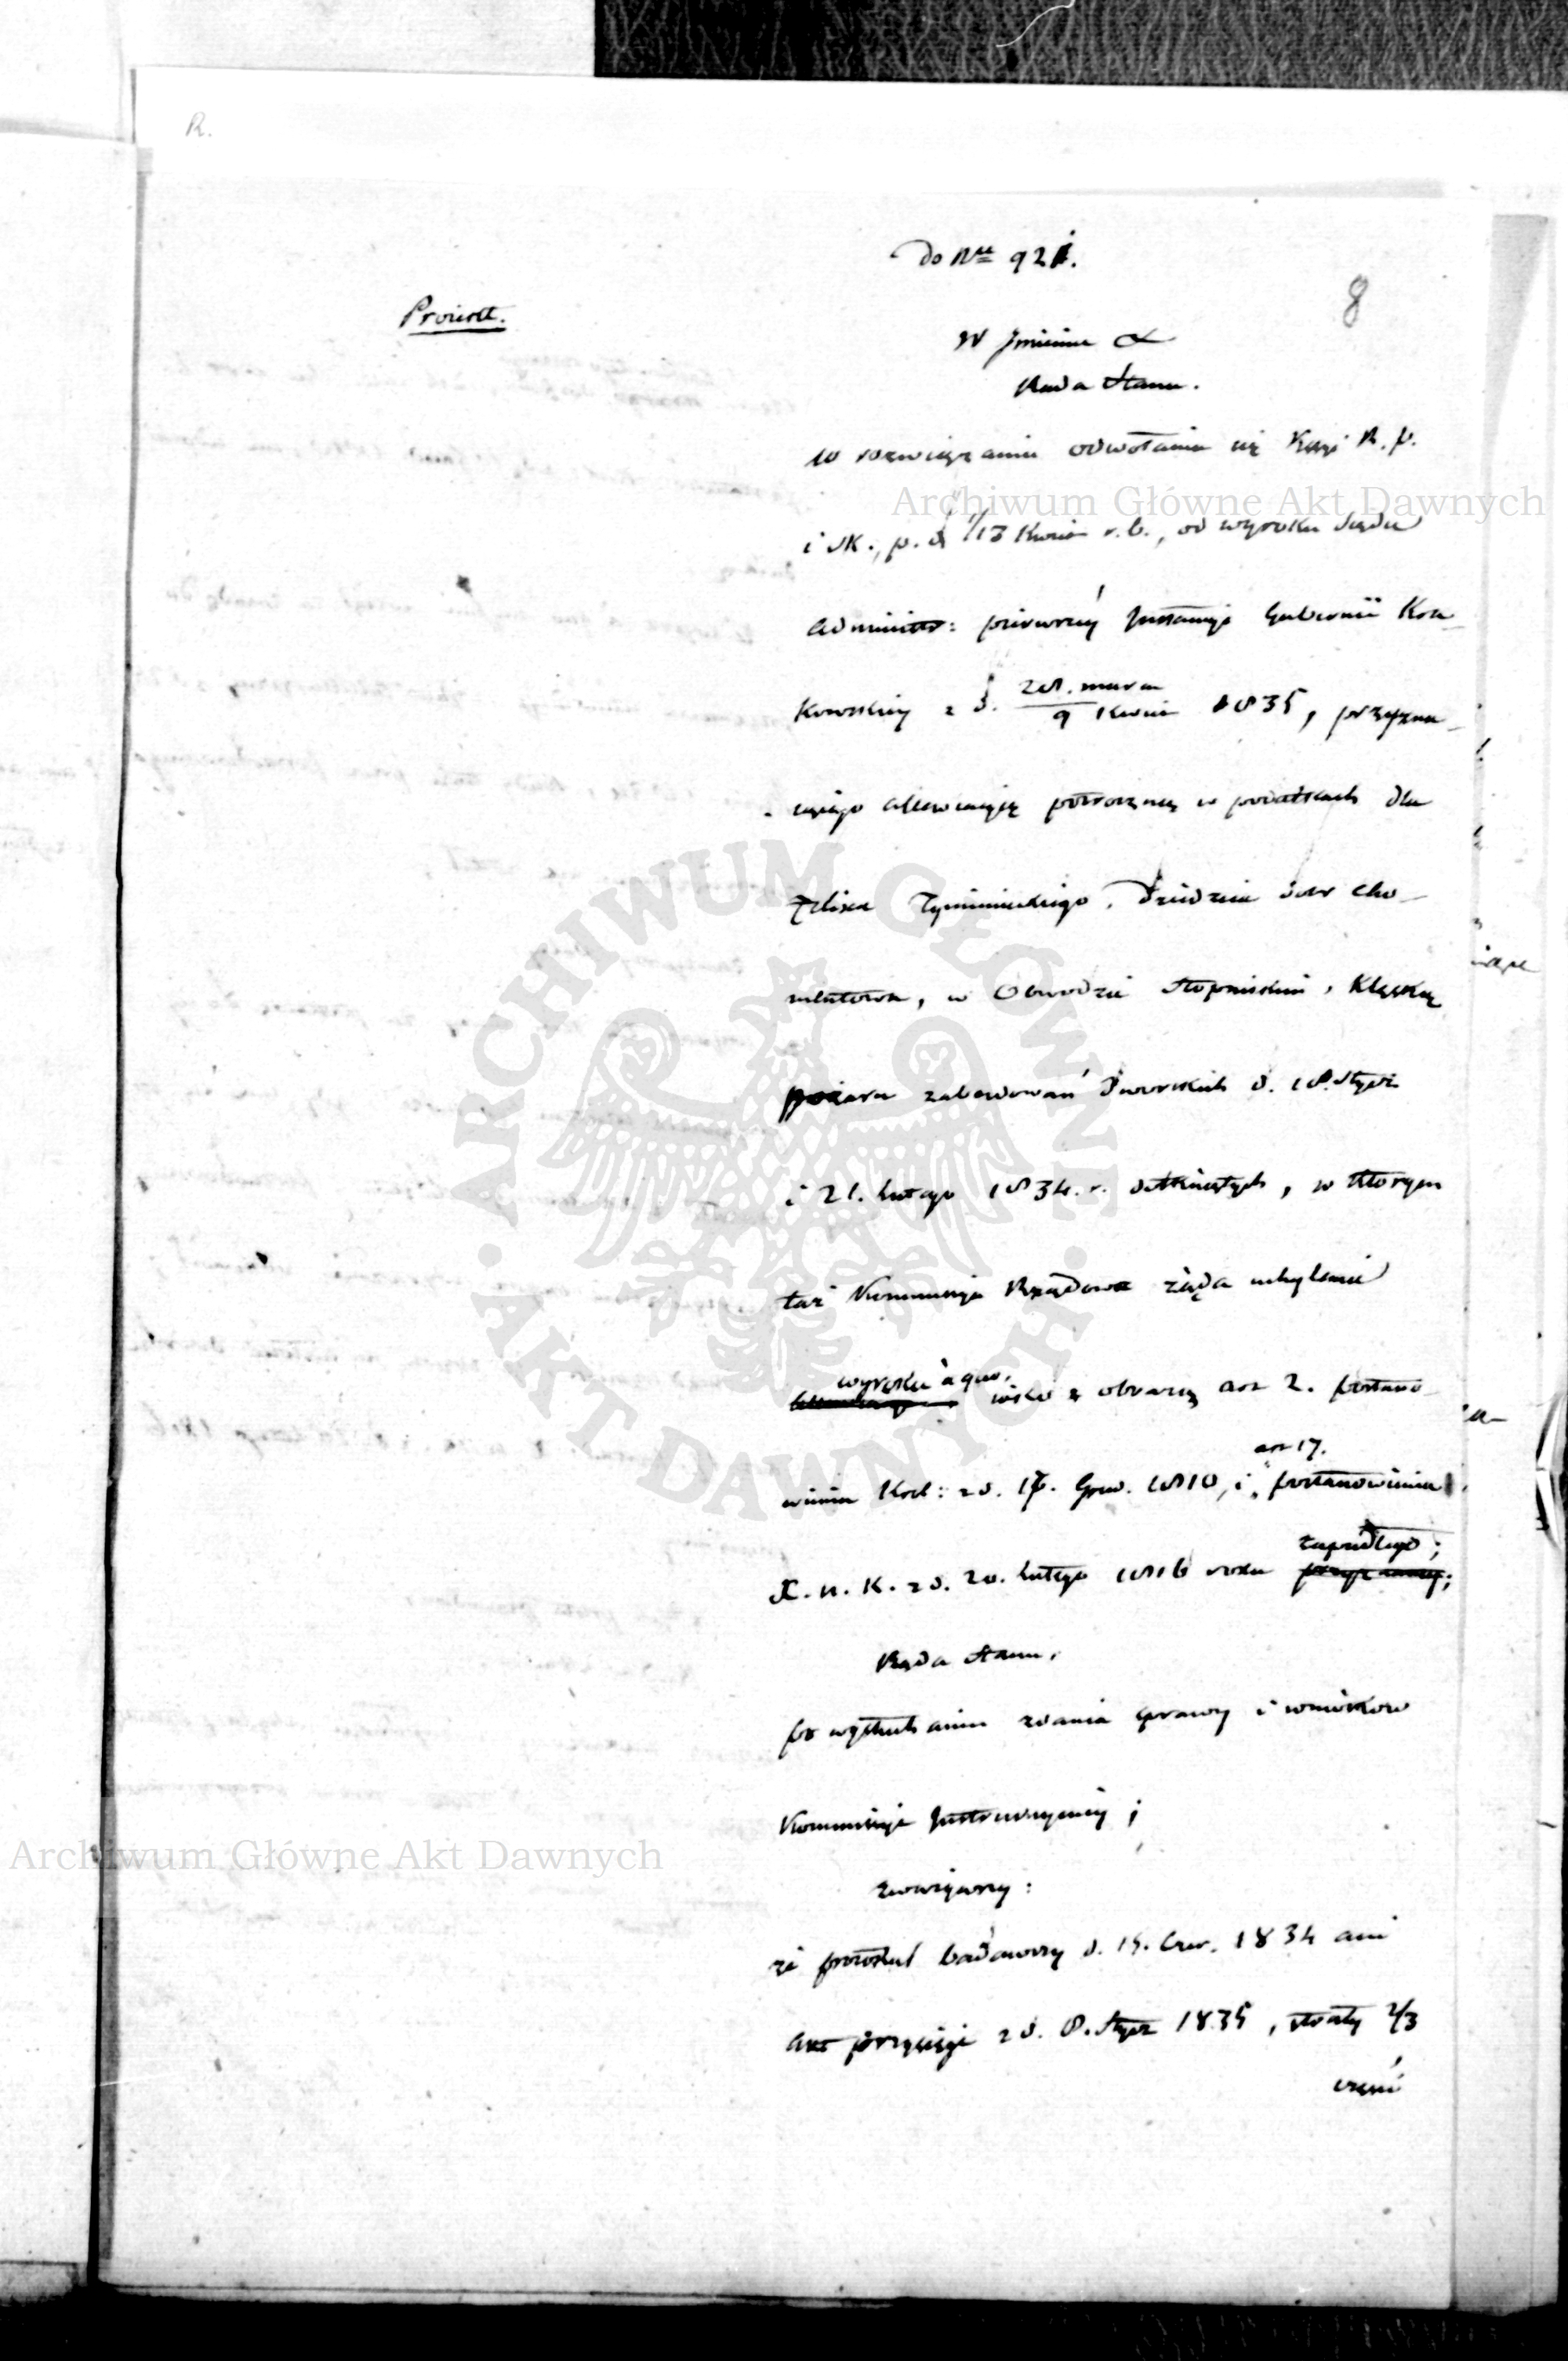 R.
Do Nru 921.
8
Proiect.
W Jmieniu &
Rada Stanu.
w rozwiązaniu odwołania się Kssyi R. p.
i Sk., p. d. 1/13 Kwiet r. b., od wyroku Sądu
Administr: pierwszéy Jnstancyi Gubernii Kra-
kowskiey z d. 28. marca / 9 Kwiet 1835, przyzna-
iącego allewiacyą potroczną w podatkach dla
Felixa Tymienieckiego, Dziedzica dobr Cho-
mentowa, w Obwodzie Stopnickim, klęską
pożaru zabudowań Dworskich d. 18. Stycz
i 21. Lutego 1834. r. dotkniętych, w którym
taż Kommissya Rządowa żąda uchylenia
wyroku à quo,
iako z obrazą art 2. postano-
wienia Król: z d. 17. Grud. 1810, i art 17. postanowienia
X. N. K. z d. 20. Lutego 1816 roku zapadłego;
Rada Stanu,
po wysłuchaniu zdania sprawy i wniosków
Kommissyi Jnstrukcyiney;
zważywszy:
że protokół badawczy d. 15. Czer. 1834 ani
akt przysięgi z d. 8. Stycz 1835, straty 2/3
części
Archiwum Główne Akt Dawnych
ARCHIWUM GŁÓWNE
AKT DAWNYCH
Archiwum Główne Akt Dawnych